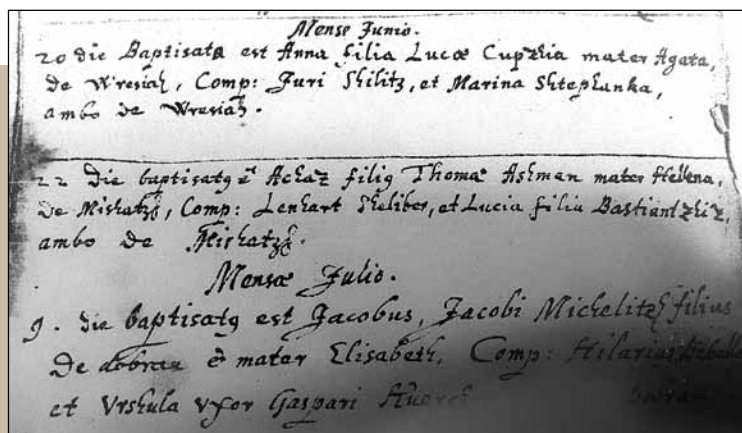 Mense Junio.
20 die Baptisata est Anna filia Lucæ Cupzhia mater Agata,
de Wresiah, Comp: Juri Shilitz, et Marina Shtephanka,
ambo de Wresiah.
22 die baptisatg Achaz filig Thomæ Ashman mater Hellena,
de Comp: Lenhart Sheliber, et Lucia filia
ambo de
Mensæ Julio.
9. die baptisatg est Jacobus, Jacobi Michelitzh filius
De mater Elisabeth. Comp: Hilarius
et Vrshula vxor Gaspari